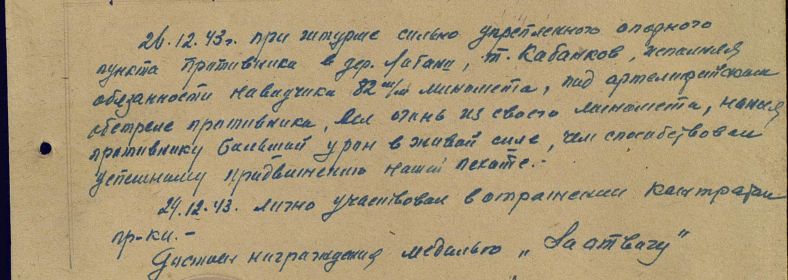 26.12.43г. при штурме сильно укрепленного опорного
пункта противника в дер. Лотани, т. Кабанков, исполняя
обязанности наводчика 82 м/м миномета, под артелирийским
обстреле противника, вел огонь из своего миномета, нанося
противнику большой урон в живой силе, чем способствовал
успешному продвижению нашей пехоте.-
24.12.43. лично участвовал в отражении контратак
пр-ка.-
Достоин награждения медалью „За отвагу"